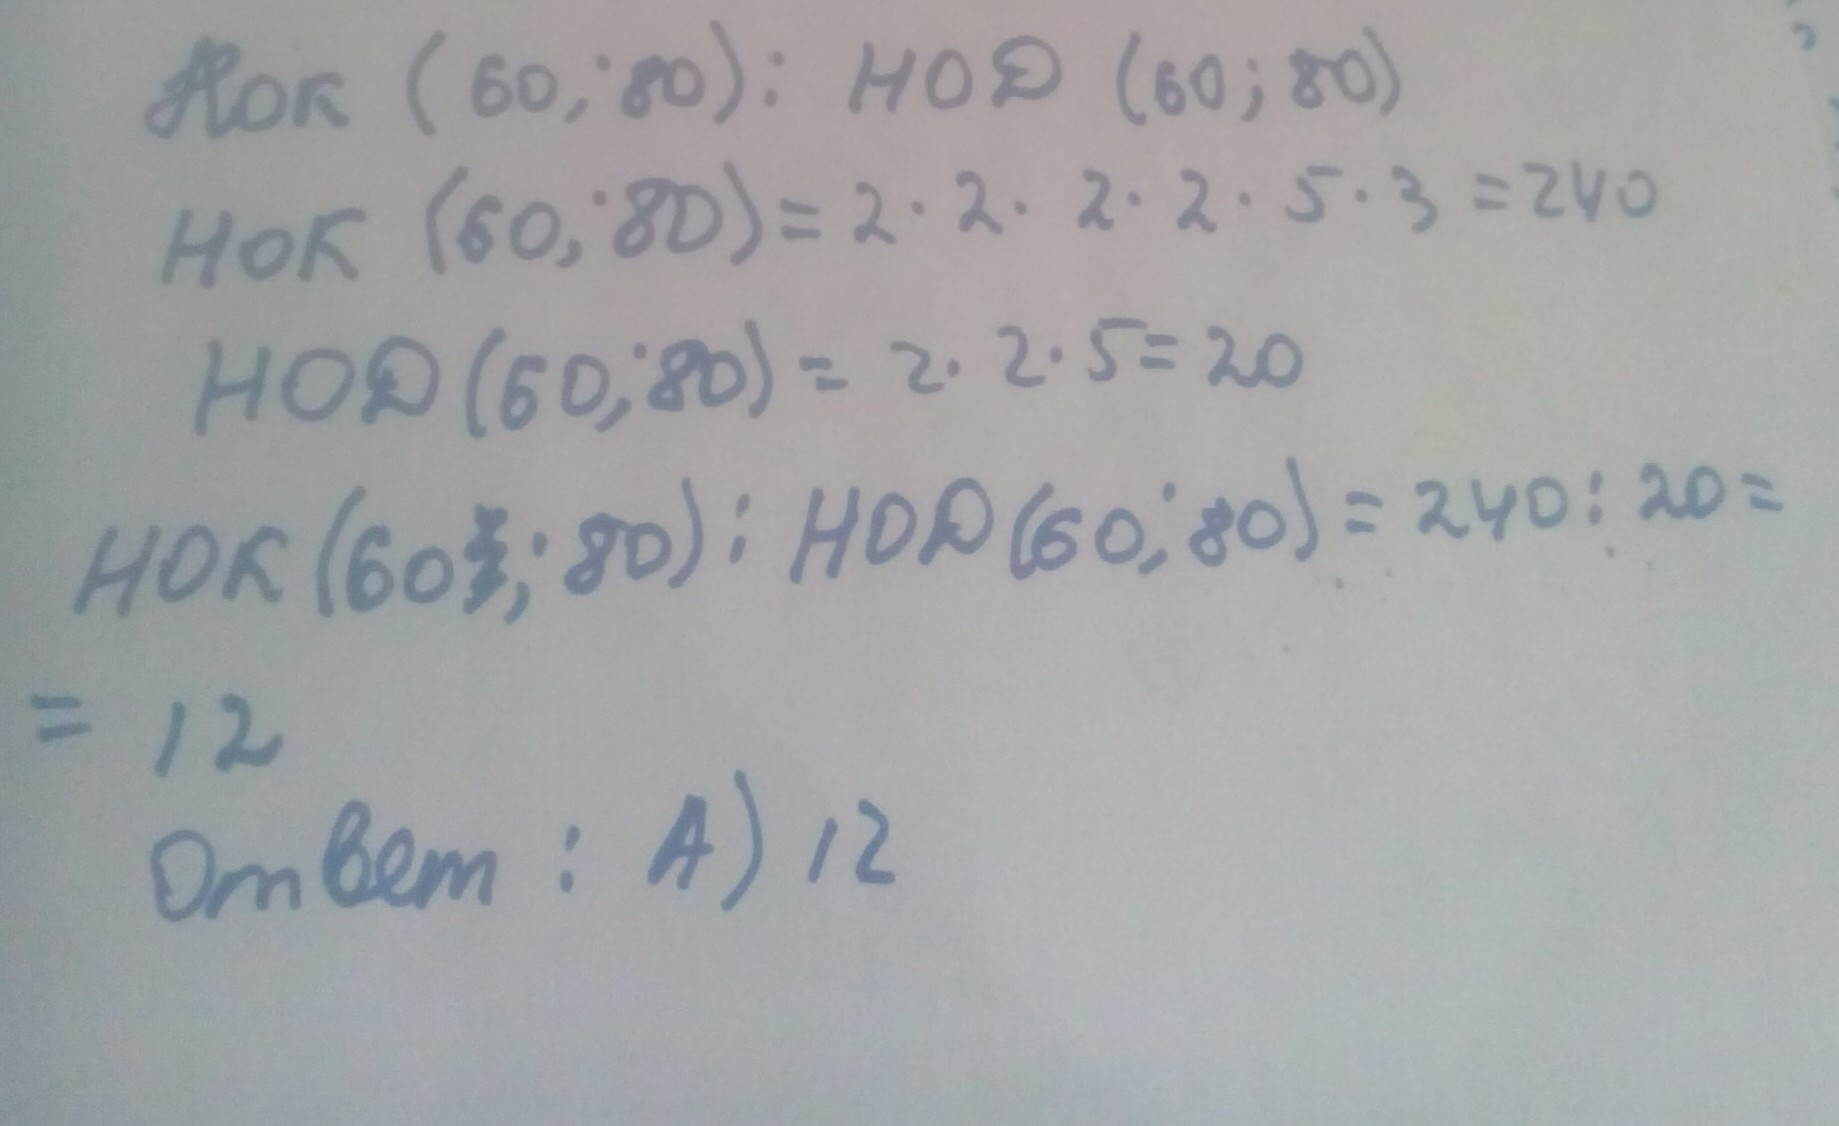 НОК (60; 80) : НОД (60; 80)
НОК (60; 80) = 2 · 2 · 2 · 2 · 5 · 3 = 240
НОД (60; 80) = 2 · 2 · 5 = 20
НОК (60; 80) : НОД (60; 80) = 240 : 20 =
= 12
Ответ : А) 12